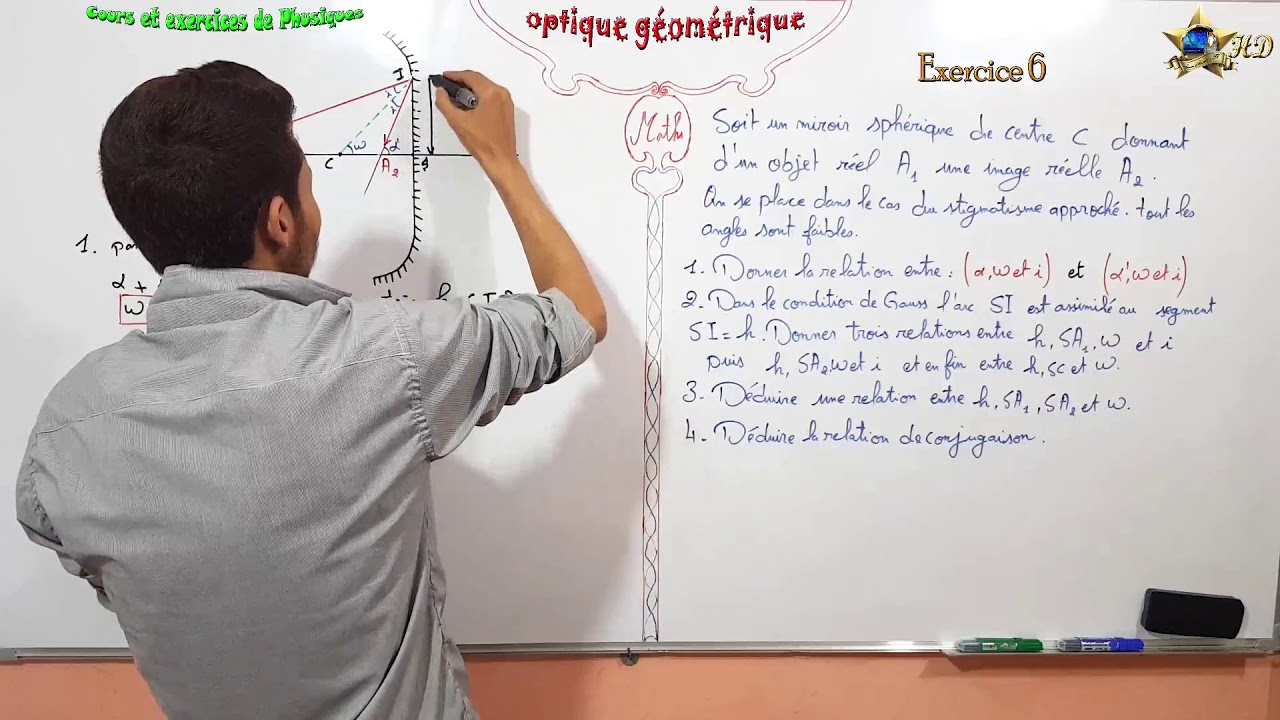 Cours et exercices de Physiques
optique géométrique
Exercice 6
HD
Maths
I
i
i
ω
α
C
A2
S
1.
α +
ω
Soit un miroir sphérique de centre C donnant
d'un objet réel A1 une image réelle A2.
On se place dans le cas du stigmatisme approché. tout les
angles sont faibles.
1. Donner la relation entre : (α, ω et i) et (α', ω et i)
2. Dans le condition de Gauss l'arc SI est assimilé au segment
SI = h. Donner trois relations entre h, SA1, ω et i
Puis h, SA2 ω et i et en fin entre h, SC et ω.
3- Déduire une relation entre h, SA1, SA2 et ω.
4- Déduire la relation de conjugaison.